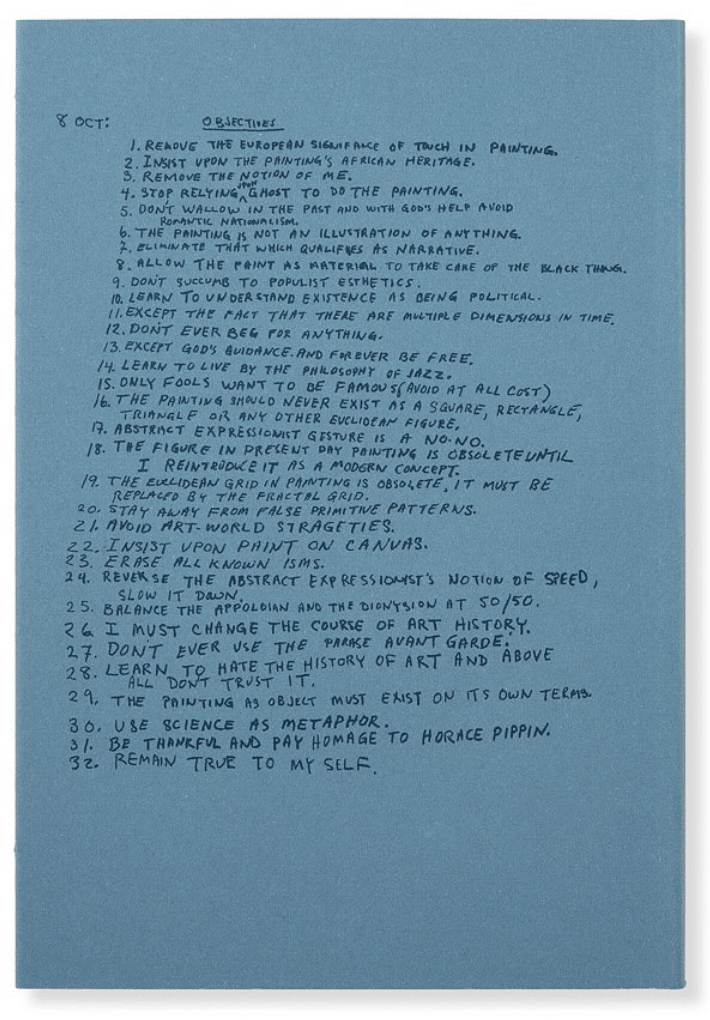 8 OCT: OBJECTIVES
1. REMOVE THE EUROPEAN SIGNIFANCE OF TOUCH IN PAINTING.
2. INSIST UPON THE PAINTING'S AFRICAN HERITAGE.
3. REMOVE THE NOTION OF ME.
4. STOP RELYING UPON GHOST TO DO THE PAINTING.
5. DON'T WALLOW IN THE PAST AND WITH GOD'S HELP AVOID
ROMANTIC NATIONALISM.
6. THE PAINTING IS NOT AN ILLUSTRATION OF ANYTHING.
7. ELIMINATE THAT WHICH QUALIFIES AS NARRATIVE.
8. ALLOW THE PAINT AS MATERIAL TO TAKE CARE OF THE BLACK THANG.
9. DON'T SUCCUMB TO POPULIST ESTHETICS.
10. LEARN TO UNDERSTAND EXISTENCE AS BEING POLITICAL.
11. EXCEPT THE FACT THAT THERE ARE MULTIPLE DIMENSIONS IN TIME.
12. DON'T EVER BEG FOR ANYTHING.
13. EXCEPT GOD'S GUIDANCE. AND FOREVER BE FREE.
14. LEARN TO LIVE BY THE PHILOSOPHY OF JAZZ.
15. ONLY FOOLS WANT TO BE FAMOUS (AVOID AT ALL COST)
16. THE PAINTING SHOULD NEVER EXIST AS A SQUARE, RECTANGLE,
TRIANGLE OR ANY OTHER EUCLIDEAN FIGURE.
17. ABSTRACT EXPRESSIONIST GESTURE IS A NO-NO.
18. THE FIGURE IN PRESENT DAY PAINTING IS OBSOLETE UNTIL
I REINTRODUCE IT AS A MODERN CONCEPT.
19. THE EUCLIDEAN GRID IN PAINTING IS OBSOLETE, IT MUST BE
REPLACED BY THE FRACTAL GRID.
20. STAY AWAY FROM FALSE PRIMITIVE PATTERNS.
21. AVOID ART-WORLD STRAGETIES.
22. INSIST UPON PAINT ON CANVAS.
23. ERASE ALL KNOWN ISMS.
24. REVERSE THE ABSTRACT EXPRESSIONIST'S NOTION OF SPEED,
SLOW IT DOWN.
25. BALANCE THE APPOLOIAN AND THE DIONYSION AT 50/50.
26 I MUST CHANGE THE COURSE OF ART HISTORY.
27. DON'T EVER USE THE PHRASE AVANT GARDE.
28. LEARN TO HATE THE HISTORY OF ART AND ABOVE
ALL DON'T TRUST IT.
29. THE PAINTING AS OBJECT MUST EXIST ON ITS OWN TERMS.
30. USE SCIENCE AS METAPHOR.
31. BE THANKFUL AND PAY HOMAGE TO HORACE PIPPIN.
32. REMAIN TRUE TO MY SELF.